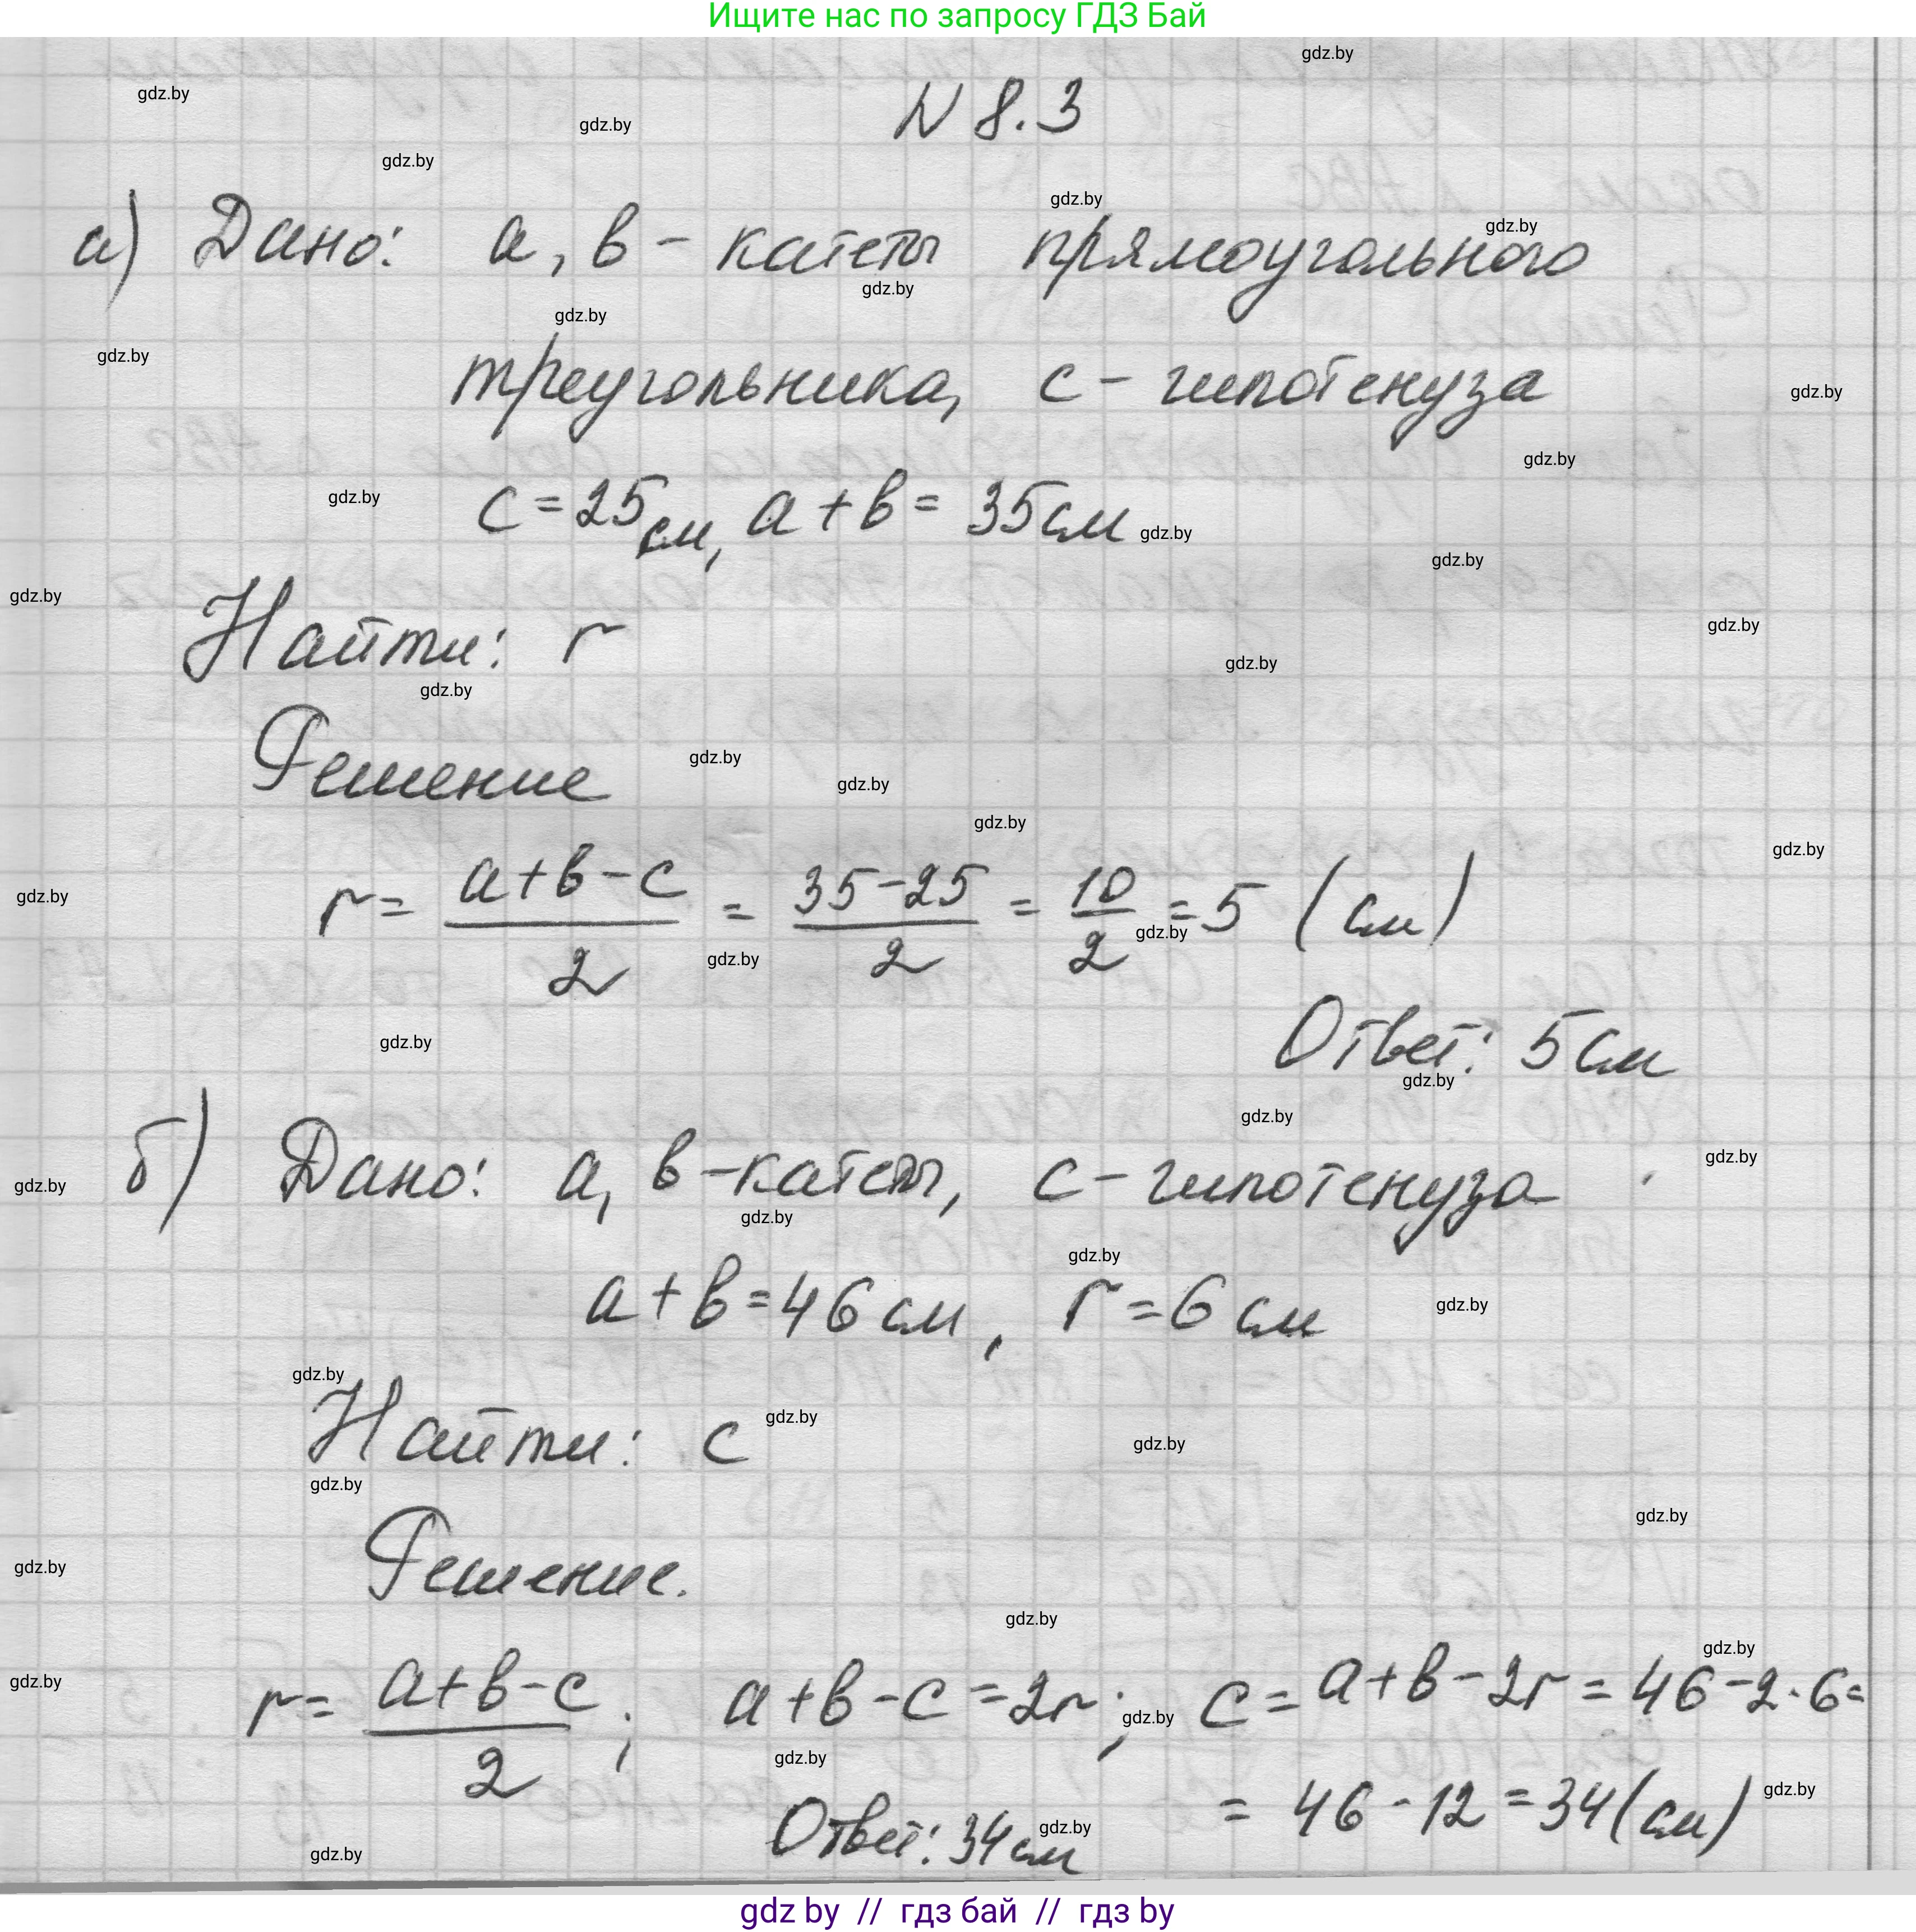 Ищите нас по запросу ГДЗ Бай
N 8.3
а) Дано: a, b - катеты прямоугольного
треугольника, c - гипотенуза
c = 25 см, a + b = 35 см
Найти: r
Решение
r = (a+b-c)/2 = (35-25)/2 = 10/2 = 5 (см)
Ответ: 5 см
б) Дано: a, b - катеты, c - гипотенуза
a + b = 46 см, r = 6 см
Найти: c
Решение.
r = (a+b-c)/2; a+b-c = 2r; c = a+b-2r = 46-2·6=
= 46-12 = 34 (см)
Ответ: 34 см
gdz by // гдз бай // гдз by